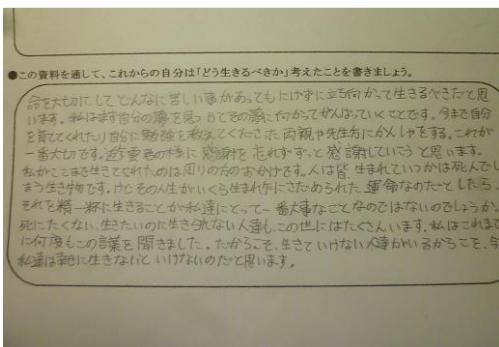 ●この資料を通して、これからの自分は「どう生きるべきか」考えたことを書きましょう。
命を大切にしてどんなに苦しい事があってもにげずに立ち向かって生きるべきだと思
います。私はまず自分の夢を見つけてその夢に向かってがんばっていくことです。今まで自分
を育ててくれたり自分に勉強を教えてくださった両親や先生方にかんしゃをする。これが
一番大切です。 感謝を忘れずずっと感謝していこうと思います。
私がここまで生きてこれたのは周りの方のおかげです。人は皆、生まれていつかは死んでし
まう生き物です。けどその人がいくら生まれ にさだめられた運命なのだとしたら、
それを精一杯に生きることが私達にとって一番大事なことなのではないのでしょうか。
死にたくない、生きたいのに生きられない人達も、この世にはたくさんいます。私はこれまで
に何度もこの言葉を聞きました。だからこそ、生きていけない人達がいるからこそ、今
私達は 生きないといけないのだと思います。